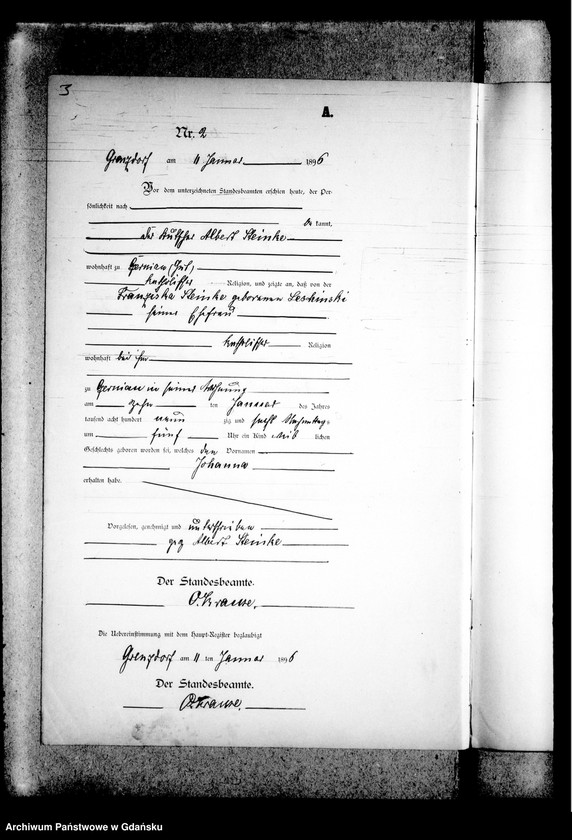 3
A.
Nr. 2
Grenzdorf am 11 Januar 1896
Vor dem unterzeichneten Standesbeamten erschien heute, der Per-
sönlichkeit nach
be kannt,
der Kutscher Albert Steinke
wohnhaft zu Czernian (Gut),
katholischer Religion, und zeigte an, daß von der
Franziska Steinke geborenen Leschinski
seiner Ehefrau
katholischer Religion
wohnhaft bei ihm
zu Czernian in seiner Wohnung
am zehn ten Januar des Jahres
tausend acht hundert neun zig und sechs Nachmittags
um fünf Uhr ein Kind weib lichen
Geschlechts geboren worden sei, welches den Vornamen
Johanna
erhalten habe.
Vorgelesen, genehmigt und unterschrieben
gez Albert Steinke
Der Standesbeamte.
O. Krause.
Die Uebereinstimmung mit dem Haupt-Register beglaubigt
Grenzdorf am 11 ten Januar 1896
Der Standesbeamte.
O. Krause.
Archiwum Państwowe w Gdańsku